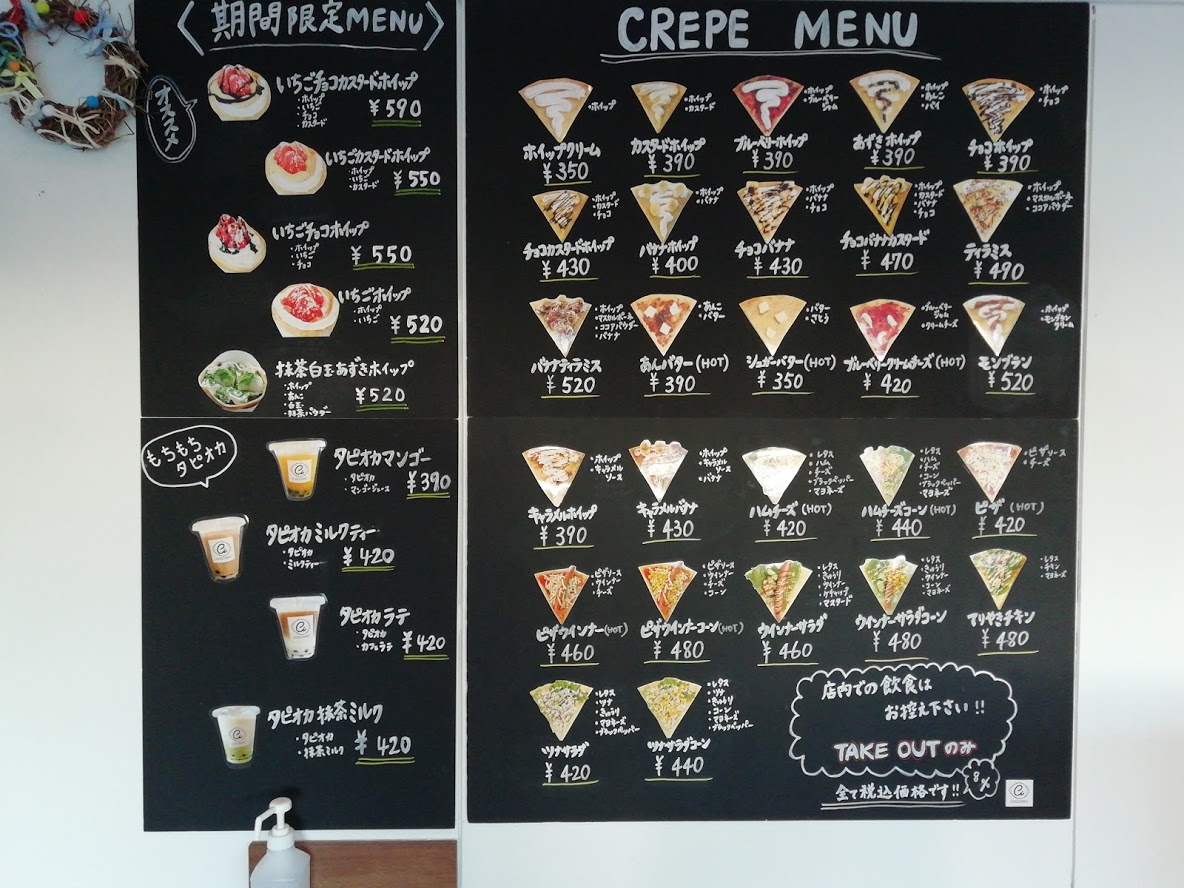 〈期間限定MENU〉
オススメ
いちごチョコカスタードホイップ
・ホイップ
・いちご
・チョコ
・カスタード
¥590
いちごカスタードホイップ
・ホイップ
・いちご
・カスタード
¥550
いちごチョコホイップ
・ホイップ
・いちご
・チョコ
¥550
いちごホイップ
・ホイップ
・いちご
¥520
抹茶白玉あずきホイップ
・ホイップ
・あんこ
・白玉
・抹茶パウダー
¥520
もちもち
タピオカ
タピオカマンゴー
・タピオカ
・マンゴージュース
¥390
タピオカミルクティー
・タピオカ
・ミルクティー
¥420
タピオカラテ
・タピオカ
・カフェラテ
¥420
タピオカ抹茶ミルク
・タピオカ
・抹茶ミルク
¥420
CREPE MENU
・ホイップ
ホイップクリーム
¥350
・ホイップ
・カスタード
カスタードホイップ
¥390
・ホイップ
・ブルーベリー
ジャム
ブルーベリーホイップ
¥390
・ホイップ
・あんこ
・パイ
あずきホイップ
¥390
・ホイップ
・チョコ
チョコホイップ
¥390
・ホイップ
・カスタード
・チョコ
チョコカスタードホイップ
¥430
・ホイップ
・バナナ
バナナホイップ
¥400
・ホイップ
・バナナ
・チョコ
チョコバナナ
¥430
・ホイップ
・カスタード
・バナナ
・チョコ
チョコバナナカスタード
¥470
・ホイップ
・マスカルポーネ
・ココアパウダー
ティラミス
¥490
・ホイップ
・マスカルポーネ
・ココアパウダー
・バナナ
バナナティラミス
¥520
・あんこ
・バター
あんバター(HOT)
¥390
・バター
・さとう
シュガーバター(HOT)
¥350
・ブルーベリー
ジャム
・クリームチーズ
ブルーベリークリームチーズ(HOT)
¥420
・ホイップ
・モンブラン
クリーム
モンブラン
¥520
・ホイップ
・キャラメル
ソース
キャラメルホイップ
¥390
・ホイップ
・キャラメル
ソース
・バナナ
キャラメルバナナ
¥430
・レタス
・ハム
・チーズ
・ブラックペッパー
・マヨネーズ
ハムチーズ(HOT)
¥420
・レタス
・ハム
・チーズ
・コーン
・ブラックペッパー
・マヨネーズ
ハムチーズコーン(HOT)
¥440
・ピザソース
・チーズ
ピザ(HOT)
¥420
・ピザソース
・ウインナー
・チーズ
ピザウインナー(HOT)
¥460
・ピザソース
・ウインナー
・チーズ
・コーン
ピザウインナーコーン(HOT)
¥480
・レタス
・きゅうり
・ウインナー
・ケチャップ
・マスタード
ウインナーサラダ
¥460
・レタス
・きゅうり
・ウインナー
・コーン
・マヨネーズ
ウインナーサラダコーン
¥480
・レタス
・チキン
・マヨネーズ
てりやきチキン
¥480
・レタス
・ツナ
・きゅうり
・マヨネーズ
・ブラックペッパー
ツナサラダ
¥420
・レタス
・ツナ
・きゅうり
・コーン
・マヨネーズ
・ブラックペッパー
ツナサラダコーン
¥440
店内での飲食は
お控え下さい!!
TAKE OUTのみ
8%
全て税込価格です!!